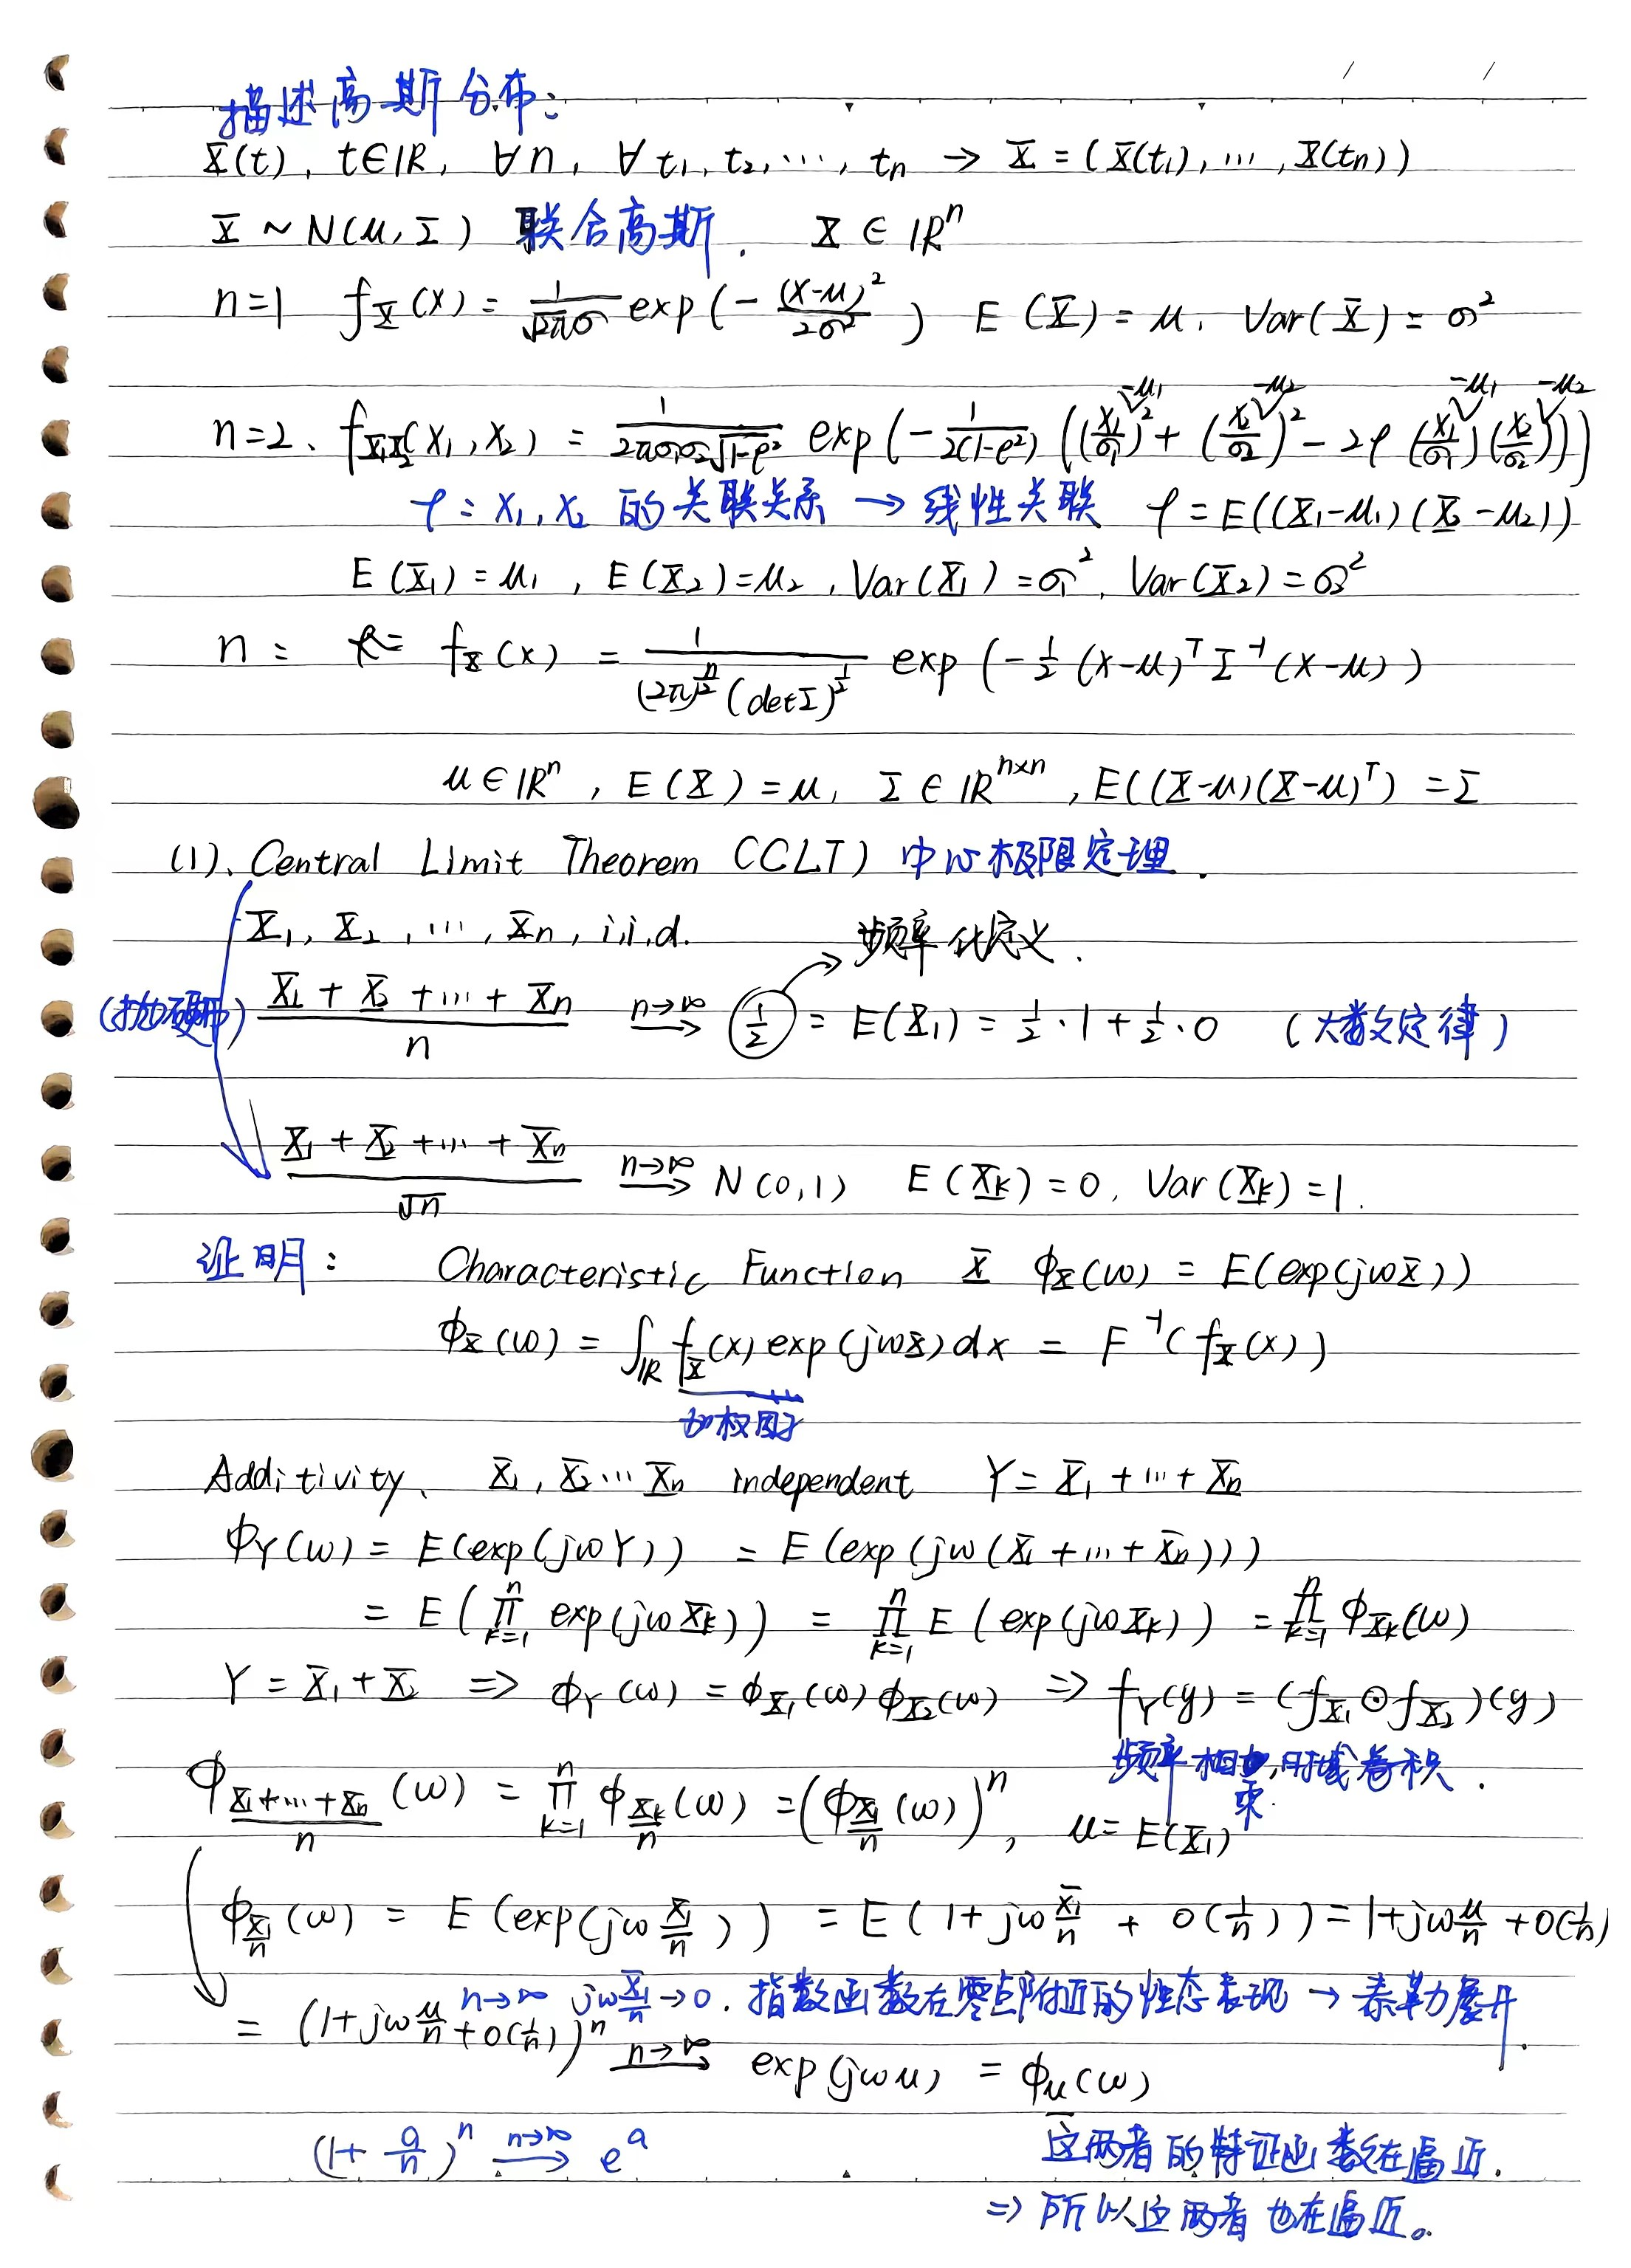 描述高斯分布:
X(t), t∈ℝ, ∀n, ∀t₁, t₂, ..., tₙ → X = (X(t₁), ..., X(tₙ))
X ~ N(μ, Σ) 联合高斯. X ∈ ℝⁿ
n=1 f_X(x) = 1/(√(2π)σ) exp(-(x-μ)²/(2σ²)) E(X) = μ, Var(X) = σ²
n=2. f_{X₁X₂}(x₁, x₂) = 1/(2πσ₁σ₂√(1-ρ²)) exp(-1/(2(1-ρ²)) (((x₁-μ₁)/σ₁)² + ((x₂-μ₂)/σ₂)² - 2ρ((x₁-μ₁)/σ₁)((x₂-μ₂)/σ₂)))
ρ: x₁, x₂ 的关联关系 → 线性关联 ρ = E((X₁-μ₁)(X₂-μ₂))
E(X₁) = μ₁, E(X₂) = μ₂, Var(X₁) = σ₁², Var(X₂) = σ₂²
n: f_X(x) = 1/((2π)^{n/2}(detΣ)^{1/2}) exp(-1/2 (x-μ)ᵀ Σ⁻¹ (x-μ))
μ ∈ ℝⁿ, E(X) = μ, Σ ∈ ℝⁿˣⁿ, E((X-μ)(X-μ)ᵀ) = Σ
(1). Central Limit Theorem (CLT) 中心极限定理.
X₁, X₂, ..., Xₙ, i.i.d. 频率化定义.
(抛硬币) (X₁ + X₂ + ... + Xₙ)/n —n→∞→ 1/2 = E(X₁) = 1/2·1 + 1/2·0 (大数定律)
(X₁ + X₂ + ... + Xₙ)/√n —n→∞→ N(0,1) E(X_k) = 0, Var(X_k) = 1.
证明: Characteristic Function X φ_X(ω) = E(exp(jωX))
φ_X(ω) = ∫_ℝ f_X(x) exp(jωx) dx = F⁻¹(f_X(x))
加权因子
Additivity. X₁, X₂ ... Xₙ independent Y = X₁ + ... + Xₙ
φ_Y(ω) = E(exp(jωY)) = E(exp(jω(X₁ + ... + Xₙ)))
= E(∏_{k=1}^n exp(jωX_k)) = ∏_{k=1}^n E(exp(jωX_k)) = ∏_{k=1}^n φ_{X_k}(ω)
Y = X₁ + X₂ ⇒ φ_Y(ω) = φ_{X₁}(ω) φ_{X₂}(ω) ⇒ f_Y(y) = (f_{X₁} ⊙ f_{X₂})(y)
频率相乘, 时域卷积.
φ_{(X₁+...+Xₙ)/n}(ω) = ∏_{k=1}^n φ_{X_k/n}(ω) = (φ_{X₁/n}(ω))ⁿ, μ = E(X₁)
φ_{X₁/n}(ω) = E(exp(jω X₁/n)) = E(1 + jω X₁/n + o(1/n)) = 1 + jω μ/n + o(1/n)
n→∞ jω X₁/n → 0. 指数函数在零点附近的性态表现 → 泰勒展开.
= (1 + jω μ/n + o(1/n))ⁿ —n→∞→ exp(jωμ) = φ_μ(ω)
(1 + a/n)ⁿ —n→∞→ eᵃ 这两者的特证函数在逼近.
⇒ 所以这两者也在逼近。